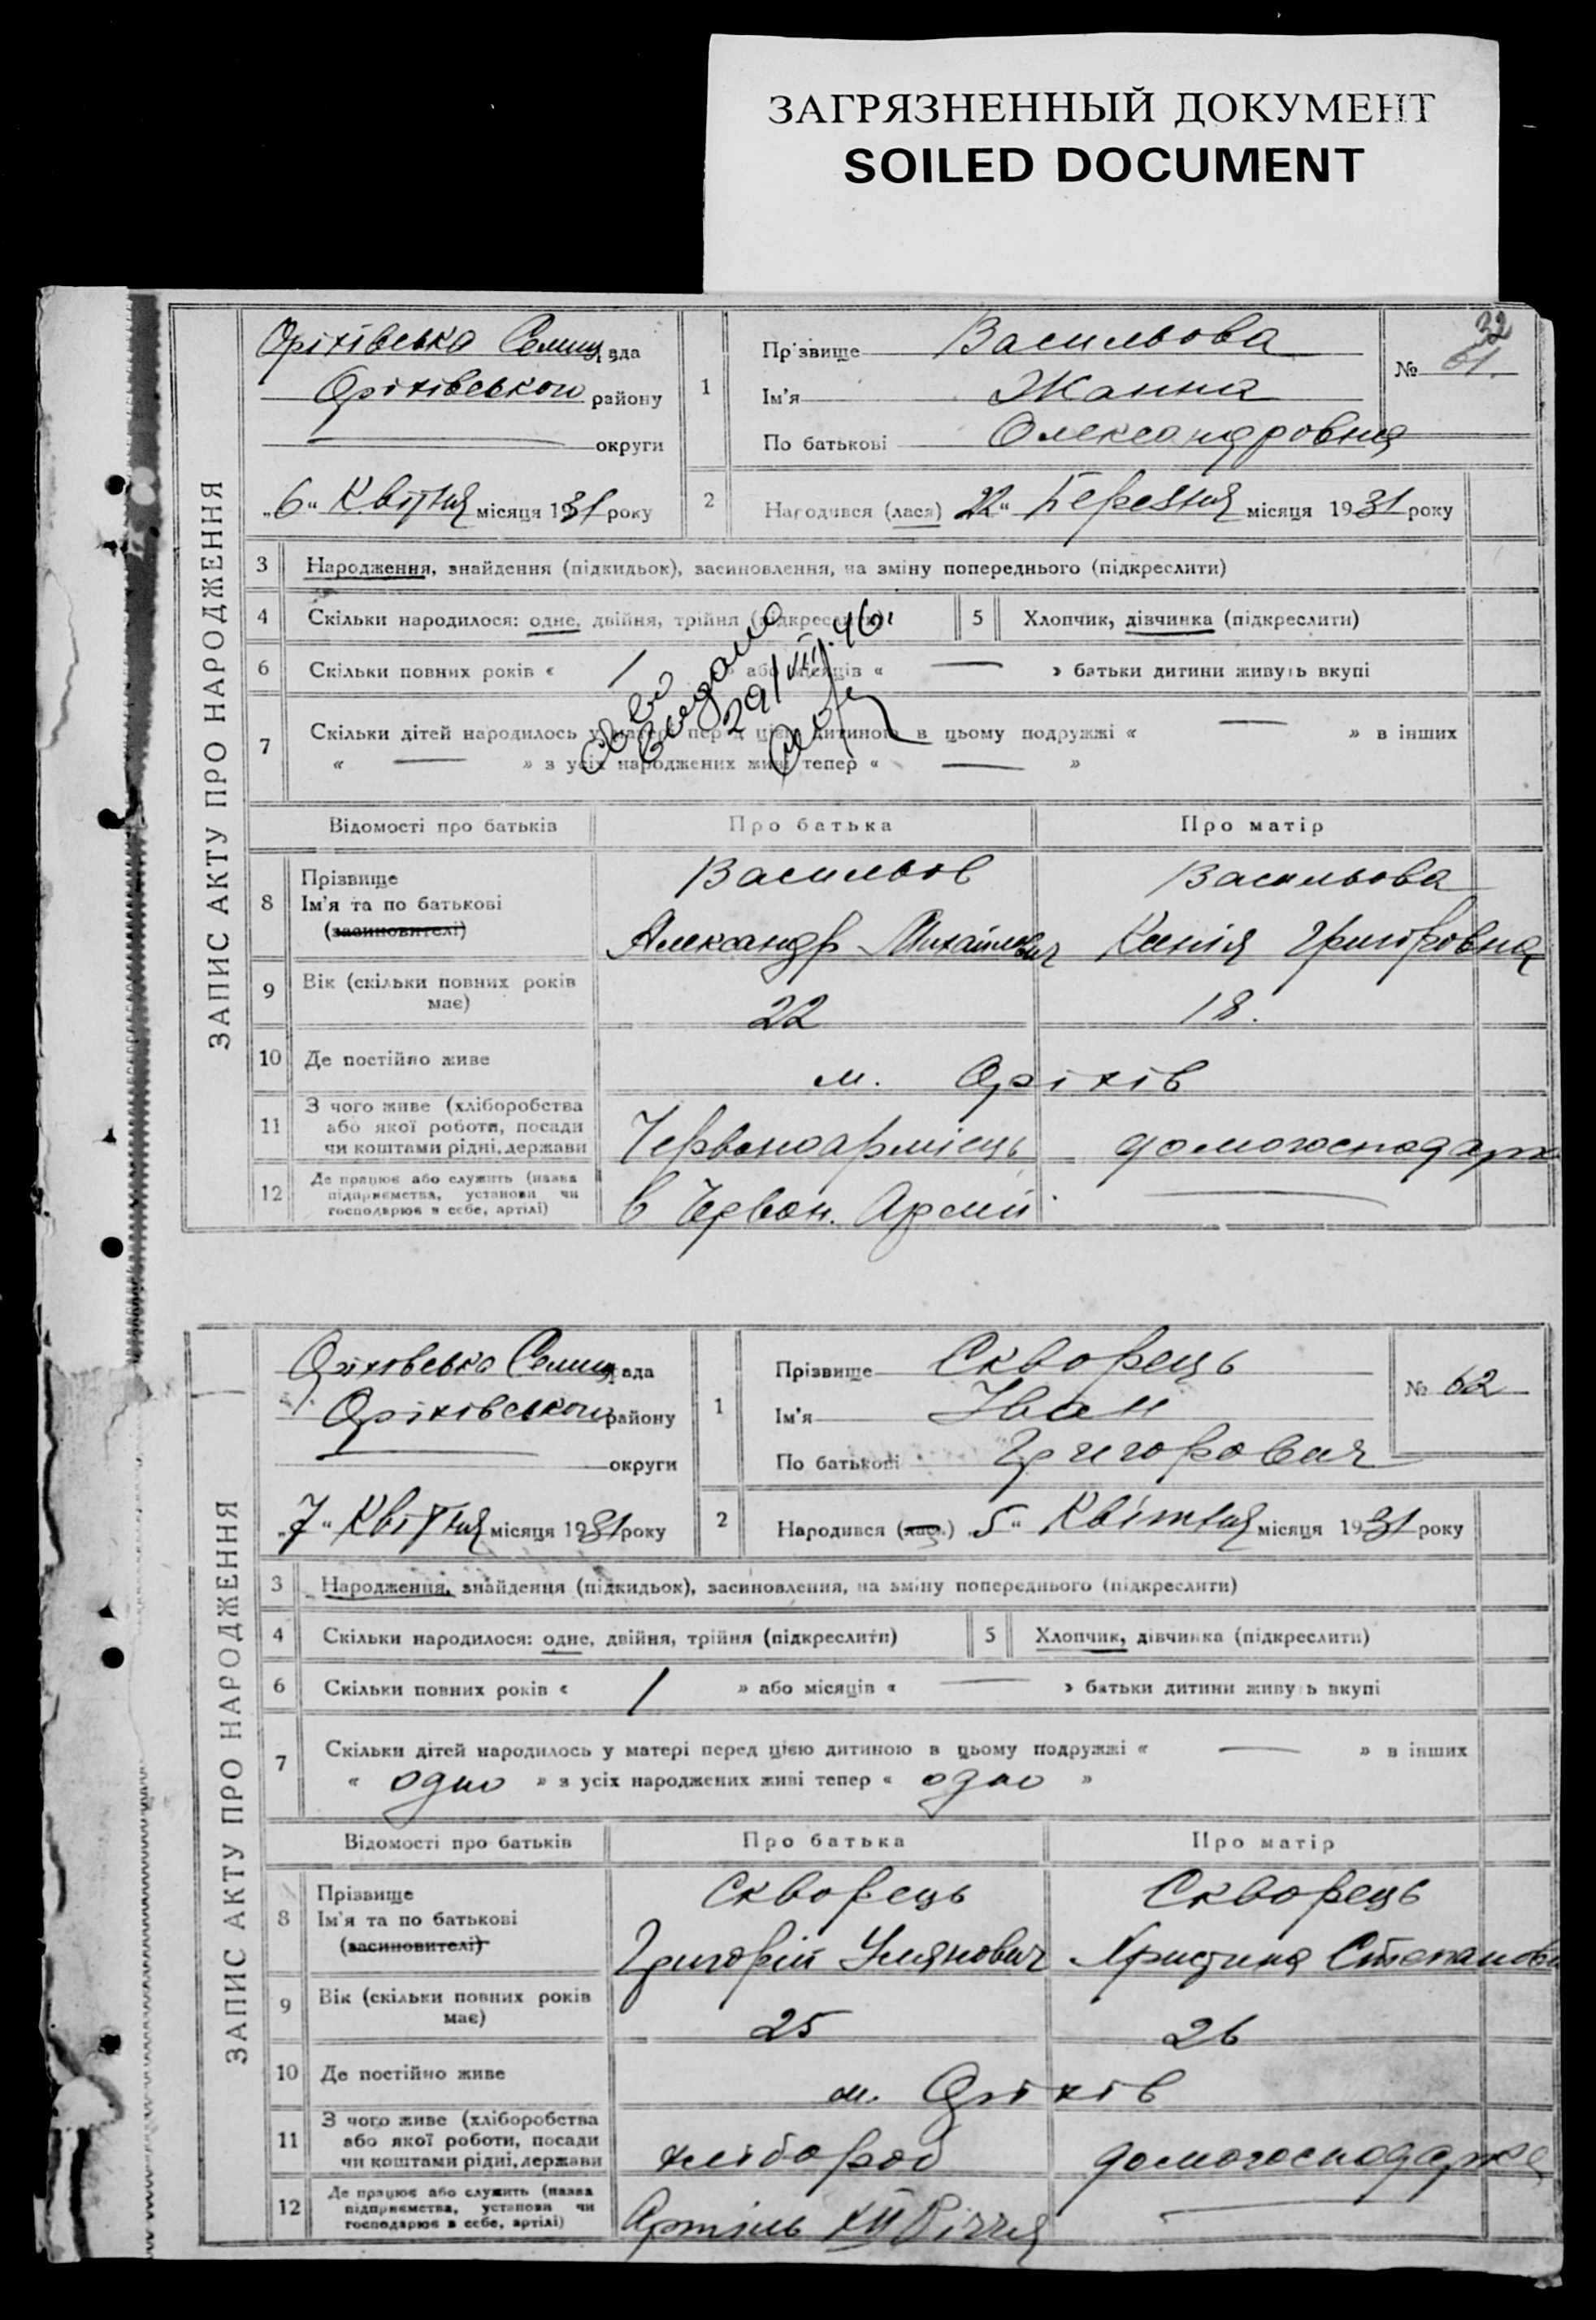 ЗАГРЯЗНЕННЫЙ ДОКУМЕНТ
SOILED DOCUMENT
ЗАПИС АКТУ ПРО НАРОДЖЕННЯ
Оріхівська Селищ рада
Оріхівського району
округи
„6“ Квітня місяця 1931 року
1
Прізвище Васильова
Ім'я Жанна
По батькові Олександровна
32
№ 61.
2
Народився (лася) 22“ Березня місяця 1931 року
3 Народження, знайдення (підкидьок), засиновлення, на зміну попереднього (підкреслити)
4 Скільки народилося: одне, двійня, трійня (підкреслити)
5 Хлопчик, дівчинка (підкреслити)
6 Скільки повних років « 1 » або місяців « — » батьки дитини живуть вкупі
7 Скільки дітей народилось у матері перед цією дитиною в цьому подружжі « — » в інших
« — » з усіх народжених живі тепер « — »
Св во
выдано
29/III 46
Відомості про батьків
Про батька
Про матір
8 Прізвище
Ім'я та по батькові
(засиновителі)
Васильов
Александр Михайлович
Васильова
Ксенія Григоровна
9 Вік (скільки повних років
має)
22
18.
10 Де постійно живе
м. Оріхів
11 З чого живе (хліборобства
або якої роботи, посади
чи коштами рідні, держави
Червоноармієць
домогосподарк
12 Де працює або служить (назва
підприємства, установи чи
господарює в себе, артілі)
в Червон. Армії
ЗАПИС АКТУ ПРО НАРОДЖЕННЯ
Оріховська Селищ рада
Оріхівського району
округи
„7“ Квітня місяця 1931 року
1
Прізвище Скворець
Ім'я Іван
По батькові Григорович
№ 62
2
Народився (лась) „5“ Квітня місяця 1931 року
3 Народження, знайдення (підкидьок), засиновлення, на зміну попереднього (підкреслити)
4 Скільки народилося: одне, двійня, трійня (підкреслити)
5 Хлопчик, дівчинка (підкреслити)
6 Скільки повних років « 1 » або місяців « — » батьки дитини живуть вкупі
7 Скільки дітей народилось у матері перед цією дитиною в цьому подружжі « — » в інших
« одно » з усіх народжених живі тепер « одно »
Відомості про батьків
Про батька
Про матір
8 Прізвище
Ім'я та по батькові
(засиновителі)
Скворець
Григорій Улянович
Скворець
Христина Степанов
9 Вік (скільки повних років
має)
25
26
10 Де постійно живе
м. Оріхів
11 З чого живе (хліборобства
або якої роботи, посади
чи коштами рідні, держави
хлібороб
домогосподарка
12 Де працює або служить (назва
підприємства, установи чи
господарює в себе, артілі)
Артіль XII Річчя